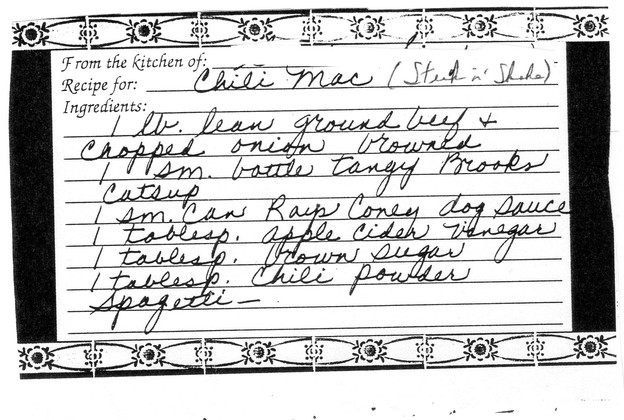 From the kitchen of:
Recipe for: Chili Mac (Steak n' Shake)
Ingredients:
1 lb. lean ground beef +
chopped onion browned
1 sm. bottle tangy Brooks
Catsup
1 sm. Can Rays Coney dog sauce
1 tablesp. apple cider vinegar
1 tablesp. brown sugar
1 tablesp. Chili powder
Spagetti —